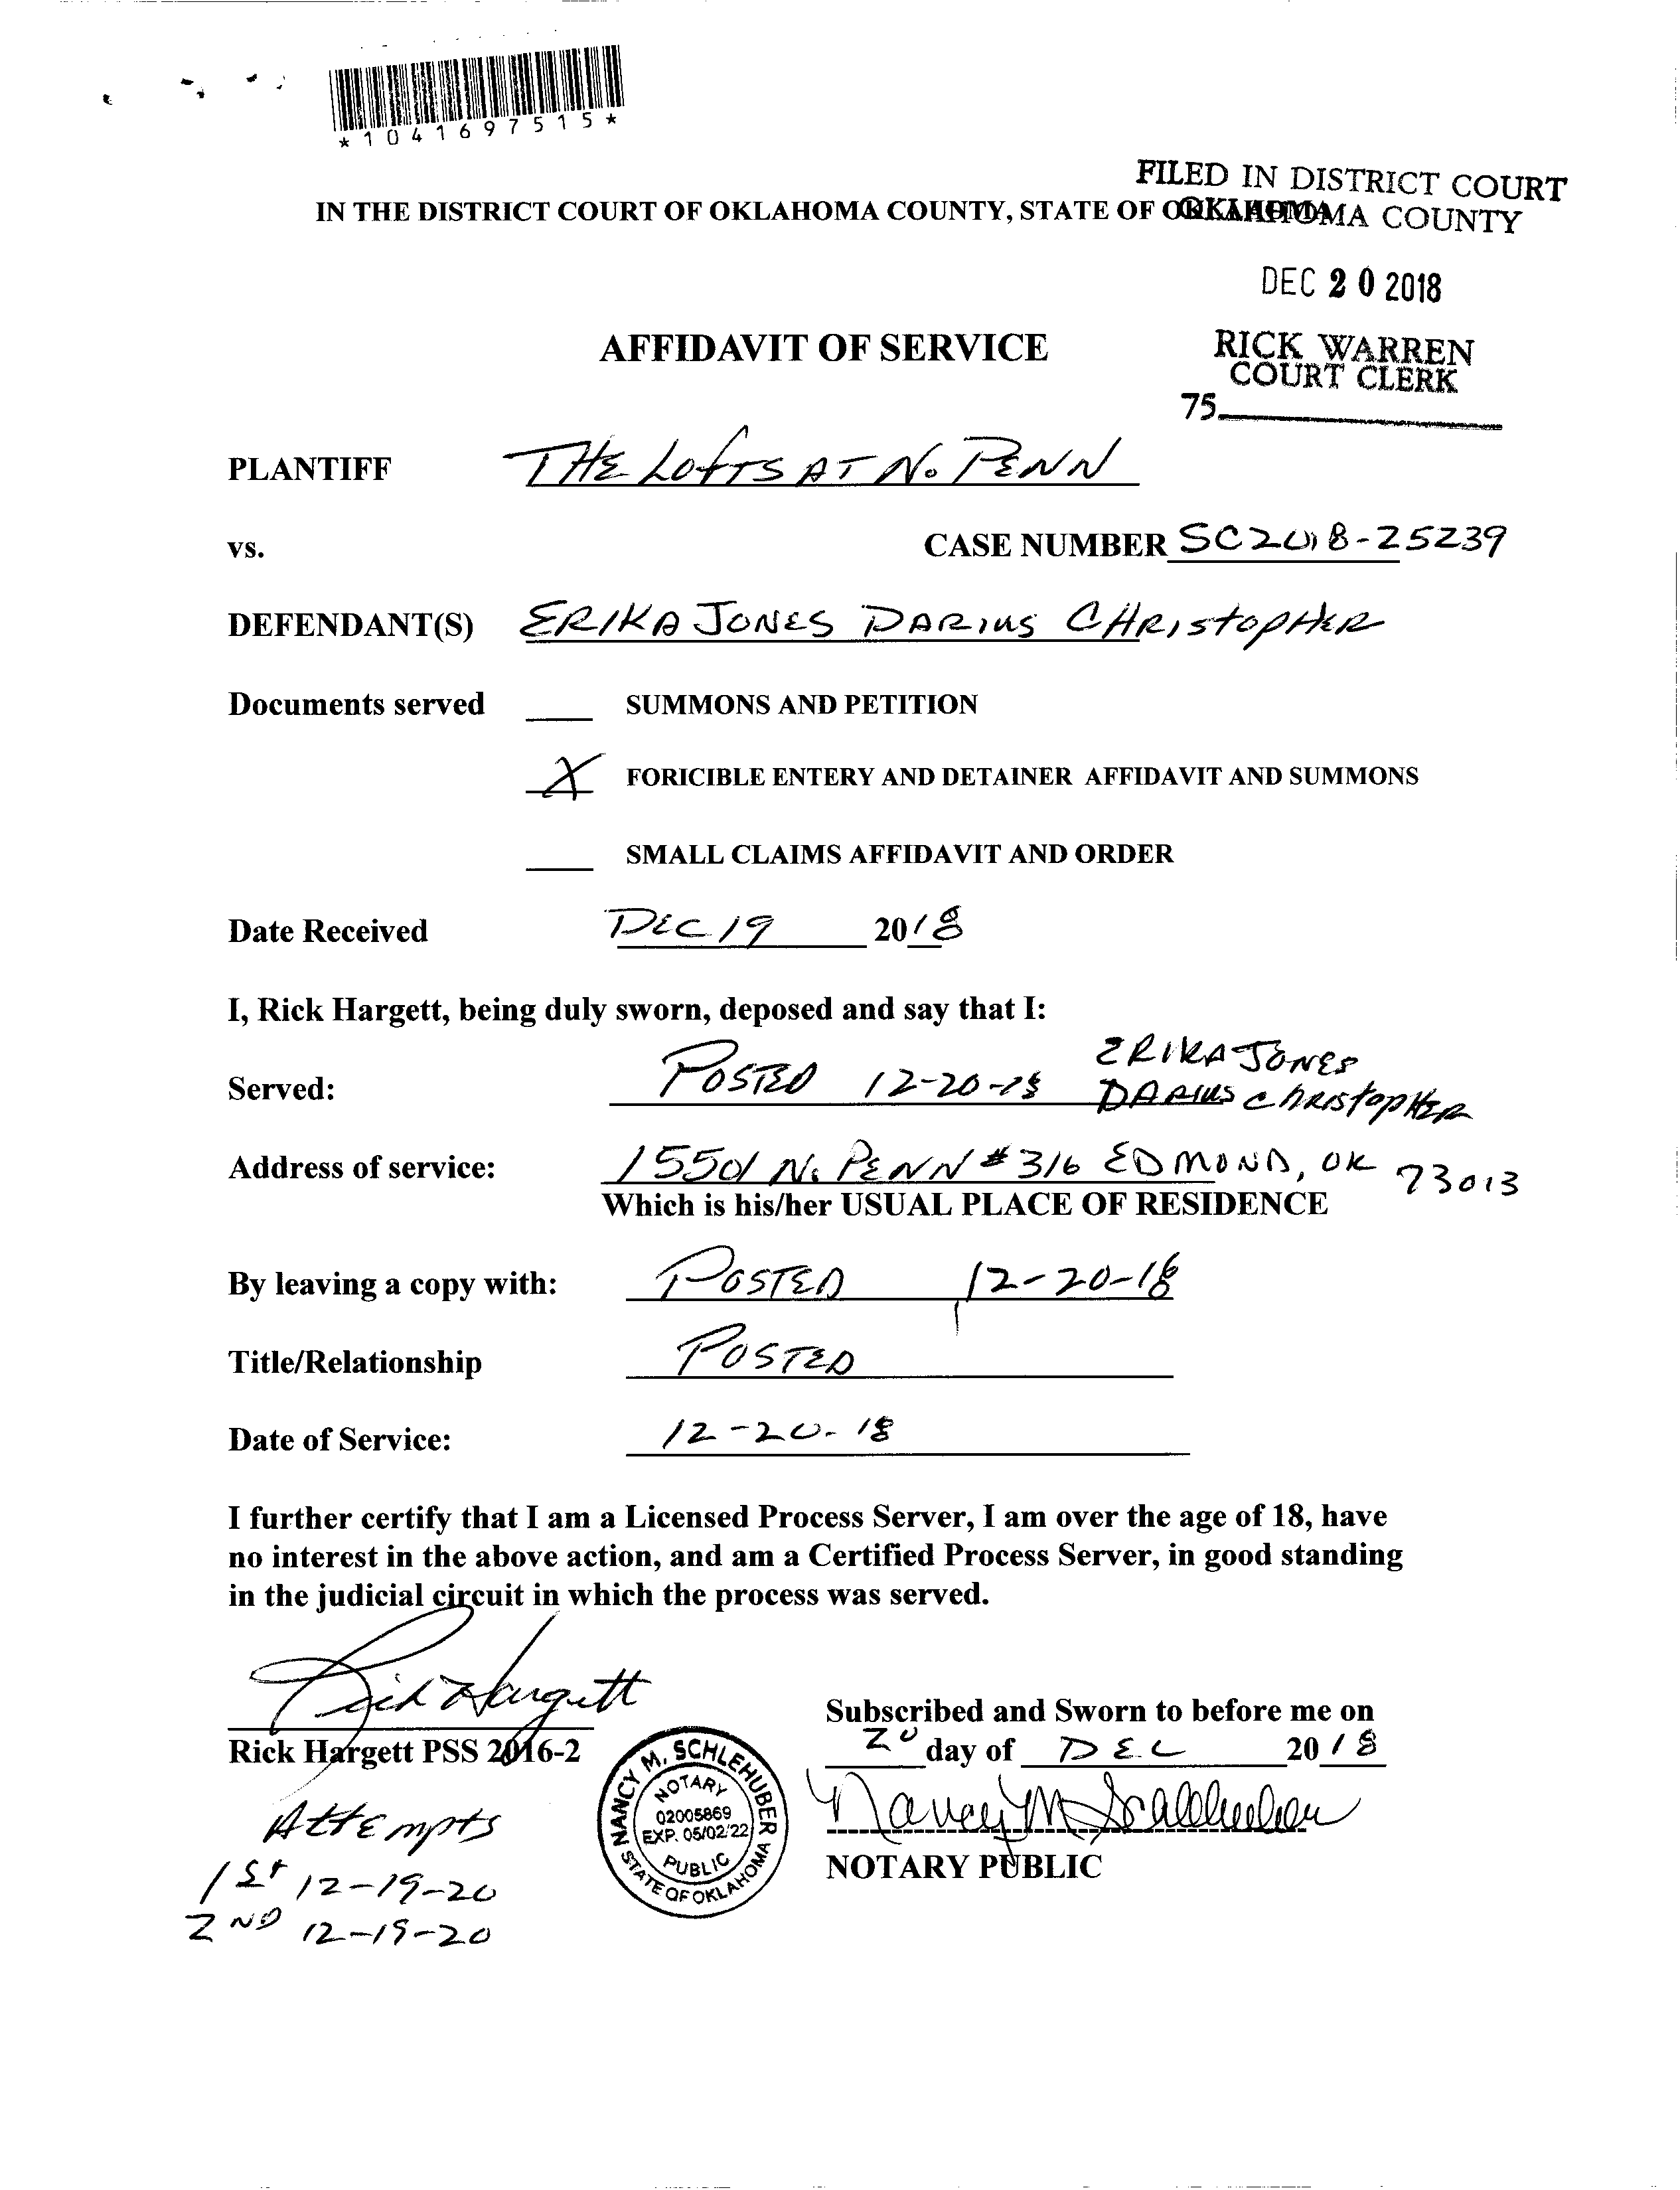 *1041697515*
FILED IN DISTRICT COURT
OKLAHOMA COUNTY
IN THE DISTRICT COURT OF OKLAHOMA COUNTY, STATE OF OKLAHOMA
DEC 20 2018
AFFIDAVIT OF SERVICE
RICK WARREN
COURT CLERK
75
PLANTIFF THE LOFTS AT N. PENN
vs. CASE NUMBER SC2018-25239
DEFENDANT(S) ERIKA JONES DARIUS CHRISTOPHER
Documents served SUMMONS AND PETITION
X FORICIBLE ENTERY AND DETAINER AFFIDAVIT AND SUMMONS
SMALL CLAIMS AFFIDAVIT AND ORDER
Date Received DEC 19 2018
I, Rick Hargett, being duly sworn, deposed and say that I:
ERIKA JONES
Served: POSTED 12-20-18 DARIUS CHRISTOPHER
Address of service: 15501 N. PENN #316 EDMOND, OK 73013
Which is his/her USUAL PLACE OF RESIDENCE
By leaving a copy with: POSTED 12-20-18
Title/Relationship POSTED
Date of Service: 12-20-18
I further certify that I am a Licensed Process Server, I am over the age of 18, have
no interest in the above action, and am a Certified Process Server, in good standing
in the judicial circuit in which the process was served.
Rick Hargett
Rick Hargett PSS 2016-2
Subscribed and Sworn to before me on
20 day of DEC 2018
Nancy M Schlehuber
NOTARY PUBLIC
NANCY M. SCHLEHUBER
NOTARY
02005869
EXP. 05/02/22
PUBLIC
STATE OF OKLAHOMA
Attempts
1st 12-19-20
2ND 12-19-20